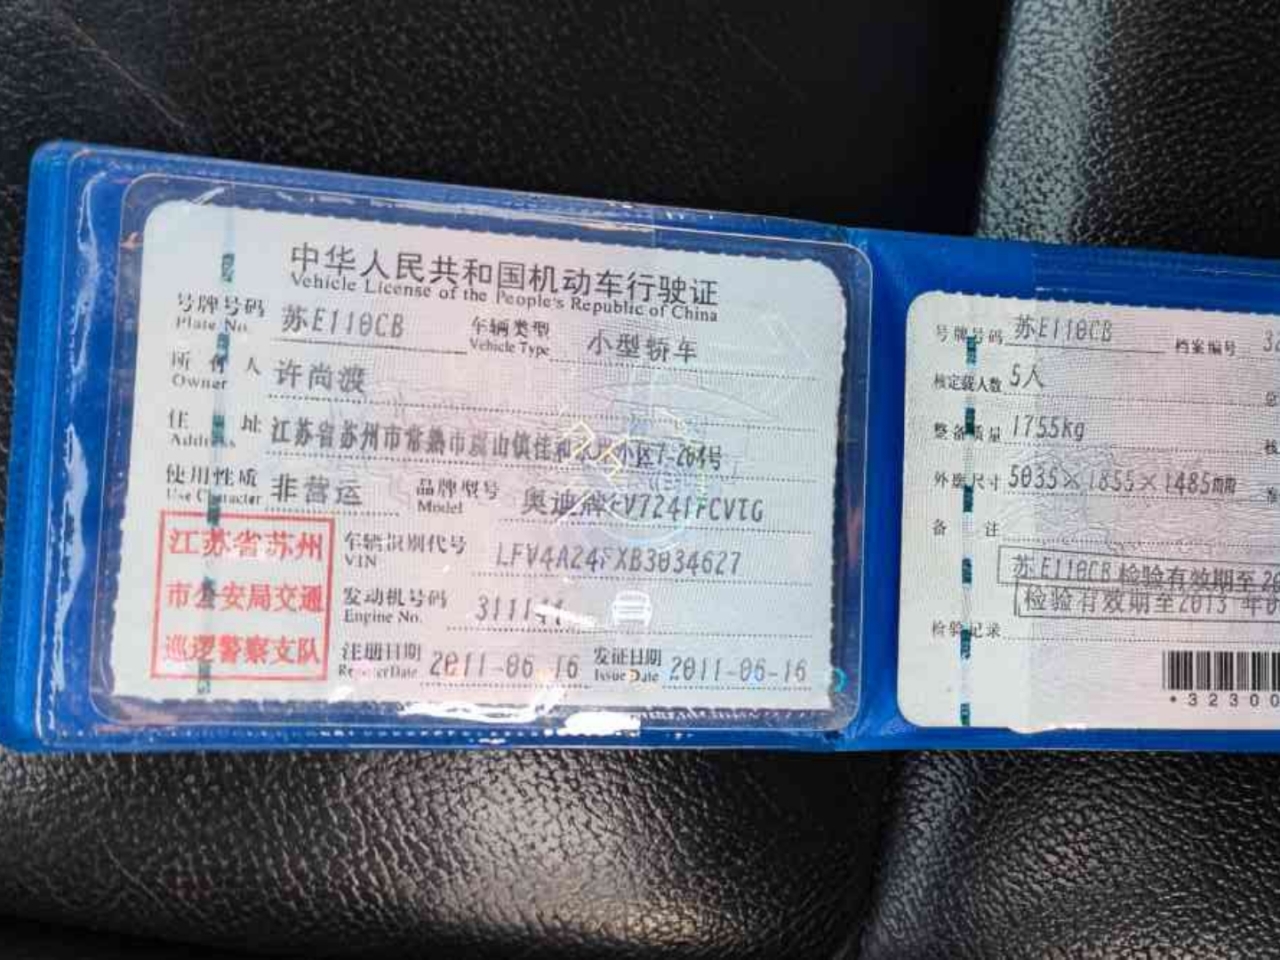 中华人民共和国机动车行驶证
Vehicle License of the People's Republic of China
号牌号码 苏E110CB 车辆类型 小型轿车
Plate No. Vehicle Type
所有人 许尚渡
Owner
住址 江苏省苏州市常熟市虞山镇佳和 小区7-264号
Address
使用性质 非营运 品牌型号 奥迪牌
Use Character Model
江苏省苏州
市公安局交通
巡逻警察支队
车辆识别代号 LFV4A24FXB3034627
VIN
发动机号码
Engine No.
注册日期 2011-06-16 发证日期 2011-06-16
Register Date Issue Date
号牌号码 苏E110CB 档案编号
核定载人数 5人
整备质量 1755kg
外廓尺寸 5035×1855×1485mm
备注
苏E110CB 检验有效期至
检验有效期至2013年
检验记录